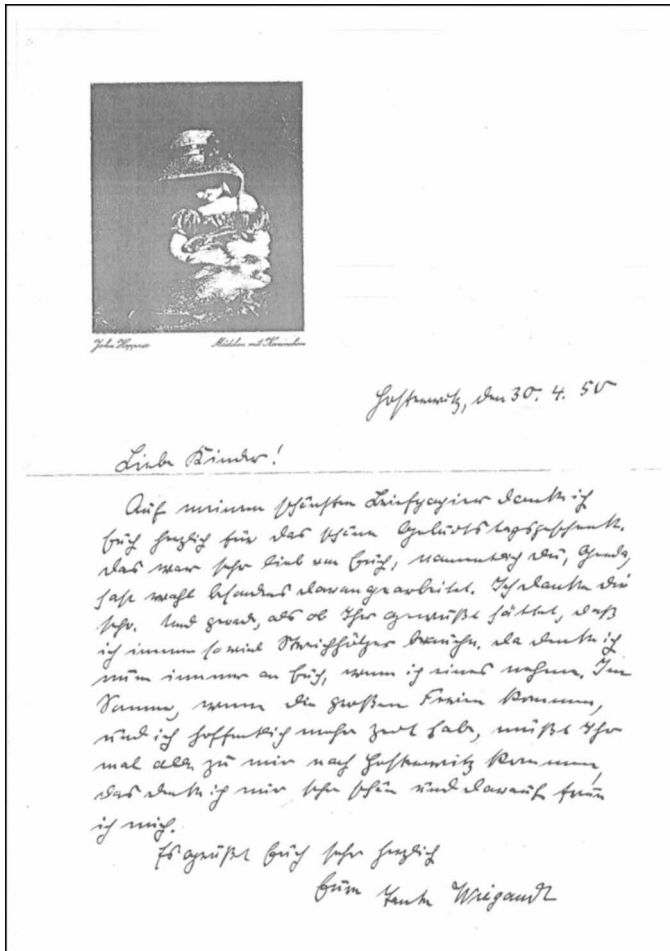 John Hoppner Mädchen mit Kaninchen
Hosterwitz, den 30. 4. 50
Liebe Kinder!
Auf meinem schönsten Briefpapier danke ich
Euch herzlich für das schöne Geburtstagsgeschenk.
Das war sehr lieb von Euch, namentlich Du, Gerda,
hast wohl besonders daran gearbeitet. Ich danke Dir
sehr. Und gerade, als ob Ihr gewußt hättet, daß
ich immer soviel Streichhölzer brauche. Da denke ich
nun immer an Euch, wenn ich eines nehme. Im
Sommer, wenn die großen Ferien kommen,
und ich hoffentlich mehr Zeit habe, müßt Ihr
mal alle zu mir nach Hosterwitz kommen,
das denke ich mir sehr schön und darauf freue
ich mich.
Es grüßt Euch sehr herzlich
Eure Tante Wiegandt